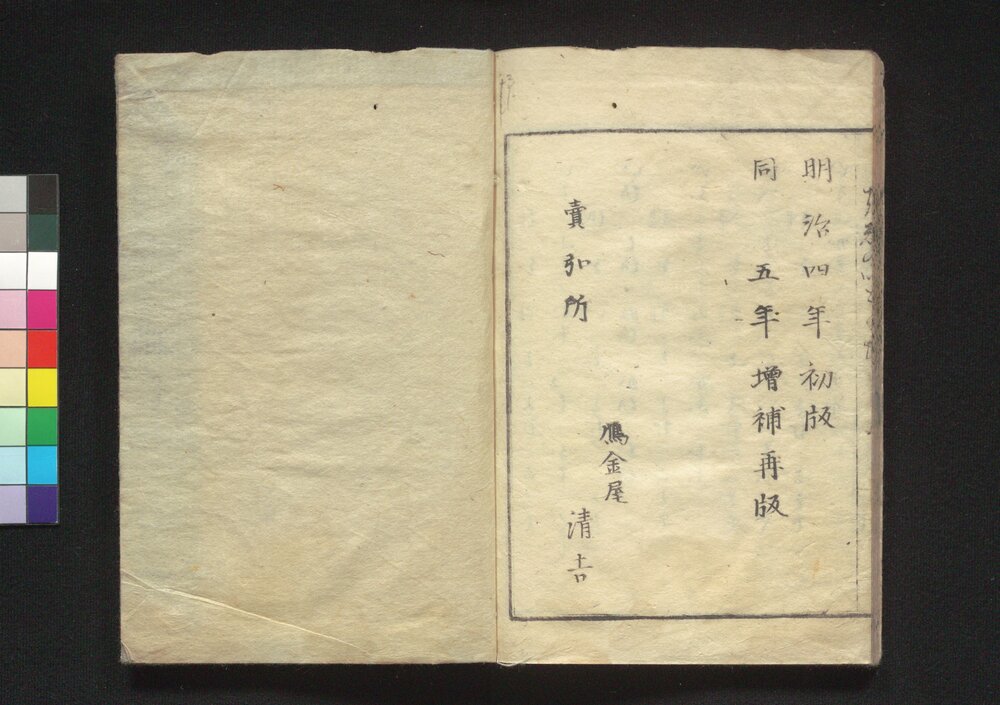 明治四年初版
同 五年増補再版
賣弘所
鴈金屋
清吉